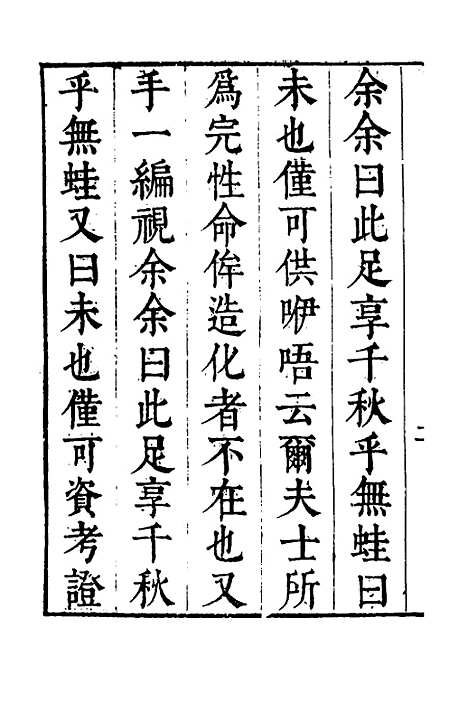 余余曰此足享千秋乎無蛙曰
未也僅可供咿唔云爾夫士所
爲完性命侔造化者不在也又
手一編視余余曰此足享千秋
乎無蛙又曰未也僅可資考證